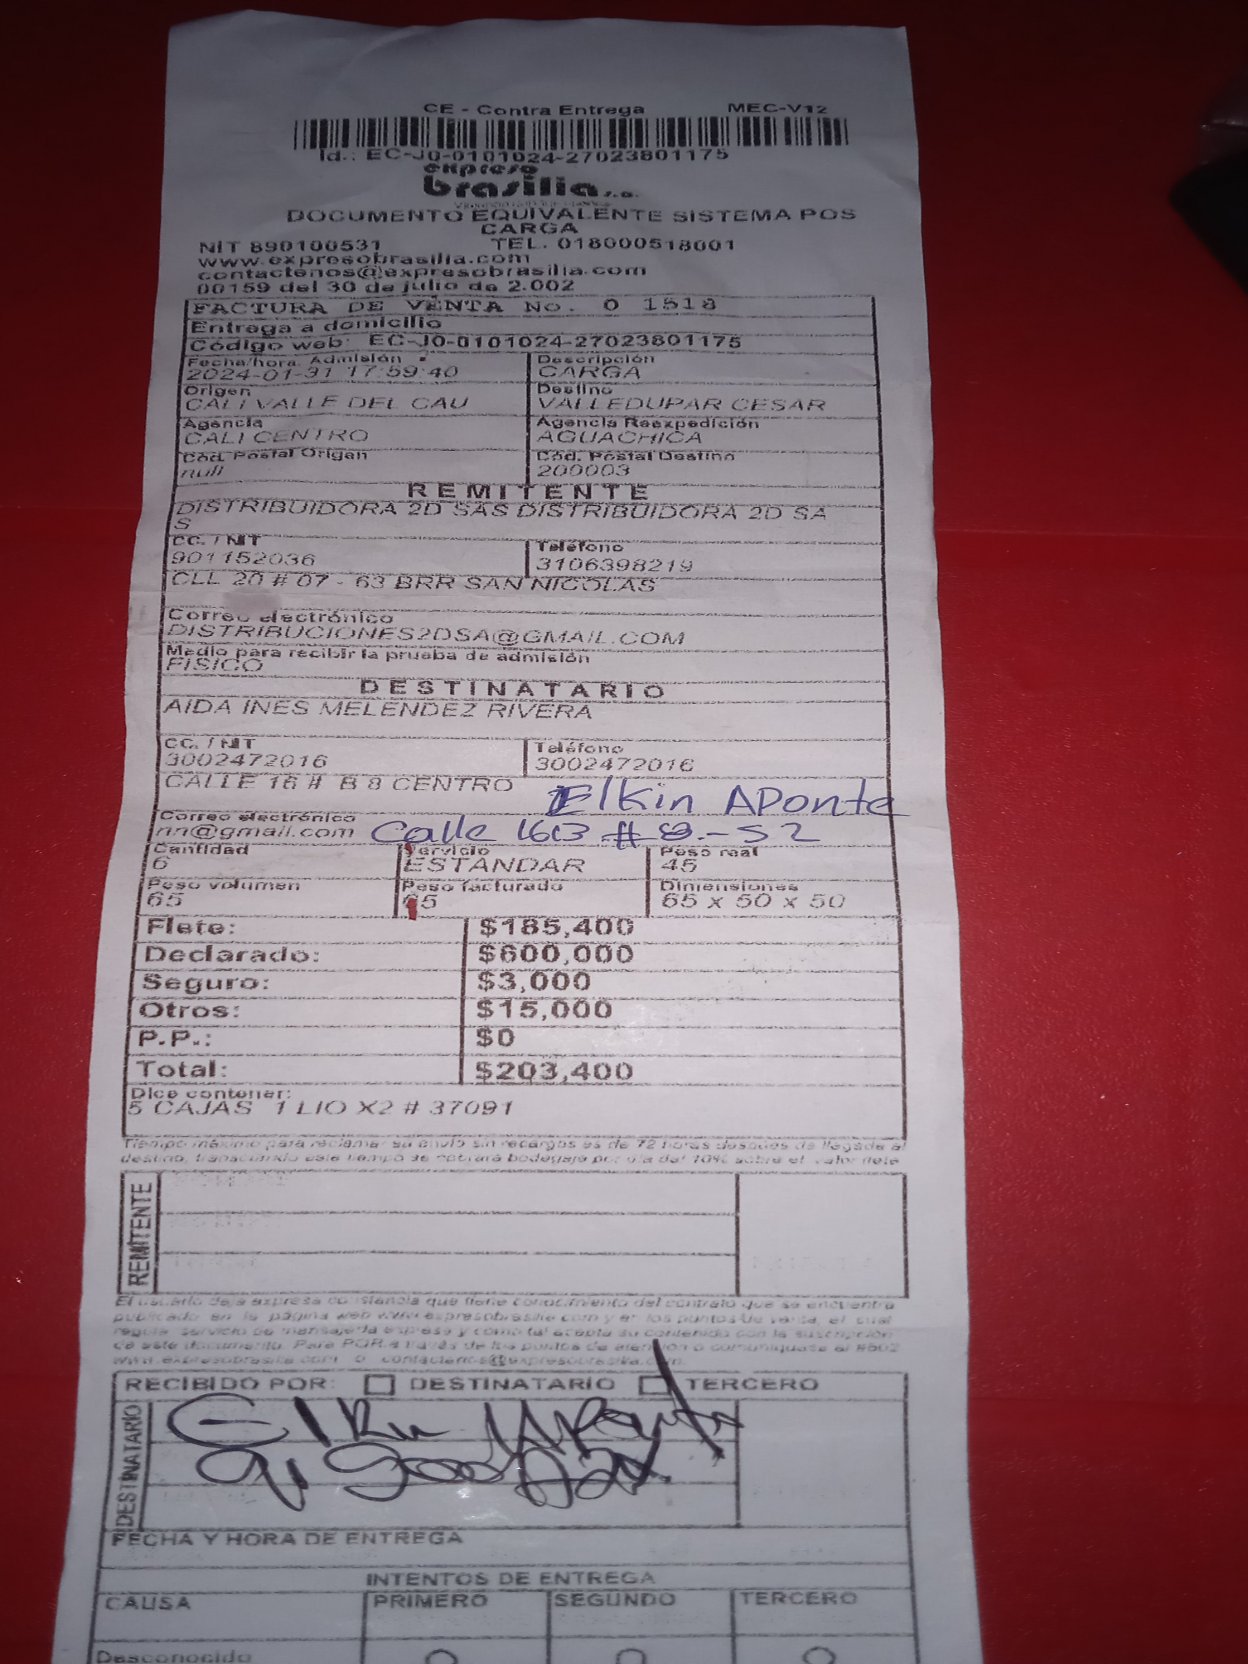 CE - Contra Entrega MEC-V12
Id.: EC-J0-0101024-27023801175
expreso
brasilia s.a.
DOCUMENTO EQUIVALENTE SISTEMA POS
CARGA
NIT 890100531 TEL. 018000518001
www.expresobrasilia.com
contactenos@expresobrasilia.com
00159 del 30 de julio de 2.002
FACTURA DE VENTA No. O 1518
Entrega a domicilio
Código web: EC-J0-0101024-27023801175
Fecha/hora Admisión Descripción
2024-01-31 17:59:40 CARGA
Origen Destino
CALI VALLE DEL CAU VALLEDUPAR CESAR
Agencia Agencia Reexpedición
CALI CENTRO AGUACHICA
Cód. Postal Origen Cód. Postal Destino
null 200003
REMITENTE
DISTRIBUIDORA 2D SAS DISTRIBUIDORA 2D SA
S
CC. / NIT Teléfono
901152036 3106398219
CLL 20 # 07 - 63 BRR SAN NICOLAS
Correo electrónico
DISTRIBUCIONES2DSA@GMAIL.COM
Medio para recibir la prueba de admisión
FISICO
DESTINATARIO
AIDA INES MELENDEZ RIVERA
CC. / NIT Teléfono
3002472016 3002472016
CALLE 16 # B 8 CENTRO Elkin APonte
Correo electrónico
nn@gmail.com Calle 16B # 8.-52
Cantidad Servicio Peso real
6 ESTANDAR 45
Peso volumen Peso facturado Dimensiones
65 65 65 x 50 x 50
Flete: $185,400
Declarado: $600,000
Seguro: $3,000
Otros: $15,000
P.P.: $0
Total: $203,400
Dice contener:
5 CAJAS 1 LIO X2 # 37091
Tiempo máximo para reclamar su envío sin recargos es de 72 horas después de llegada al
destino, transcurrido este tiempo se cobrará bodegaje por día del 10% sobre el valor flete
REMITENTE
El usuario deja expresa constancia que tiene conocimiento del contrato que se encuentra
publicado en la página web www.expresobrasilia.com y en los puntos de venta, el cual
regula servicio de mensajería expresa y como tal acepta su contenido con la suscripción
de este documento. Para PQR a través de los puntos de atención o comuníquese al #502
www.expresobrasilia.com o contactenos@expresobrasilia.com.
RECIBIDO POR: DESTINATARIO TERCERO
DESTINATARIO
Elkin Aponte
FECHA Y HORA DE ENTREGA
INTENTOS DE ENTREGA
CAUSA PRIMERO SEGUNDO TERCERO
Desconocido